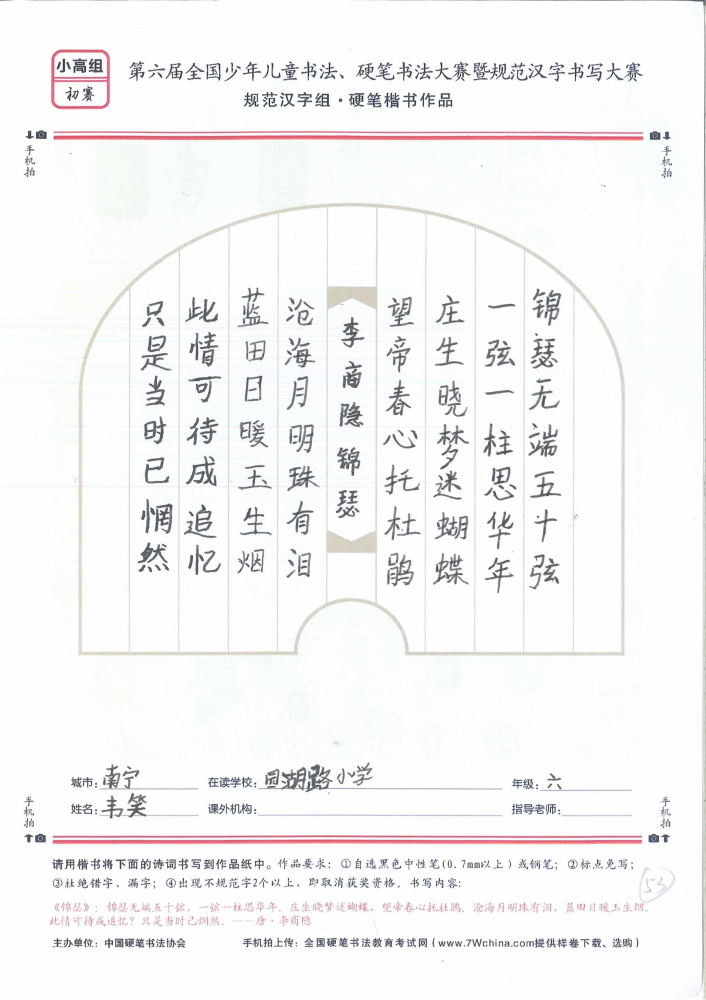 小高组
初赛
第六届全国少年儿童书法、硬笔书法大赛暨规范汉字书写大赛
规范汉字组·硬笔楷书作品
手机拍
手机拍
锦瑟无端五十弦
一弦一柱思华年
庄生晓梦迷蝴蝶
望帝春心托杜鹃
李商隐锦瑟
沧海月明珠有泪
蓝田日暖玉生烟
此情可待成追忆
只是当时已惘然
城市：南宁 在读学校：园湖路小学 年级：六
姓名：韦笑 课外机构： 指导老师：
手机拍
手机拍
请用楷书将下面的诗词书写到作品纸中。作品要求：①自选黑色中性笔(0.7mm以上）或钢笔；②标点免写；
③杜绝错字、漏字；④出现不规范字2个以上，即取消获奖资格。书写内容：
53
《锦瑟》：锦瑟无端五十弦，一弦一柱思华年。庄生晓梦迷蝴蝶，望帝春心托杜鹃。沧海月明珠有泪，蓝田日暖玉生烟。
此情可待成追忆？只是当时已惘然。——唐·李商隐
主办单位：中国硬笔书法协会 手机拍上传：全国硬笔书法教育考试网（www.7Wchina.com提供样卷下载、选购）